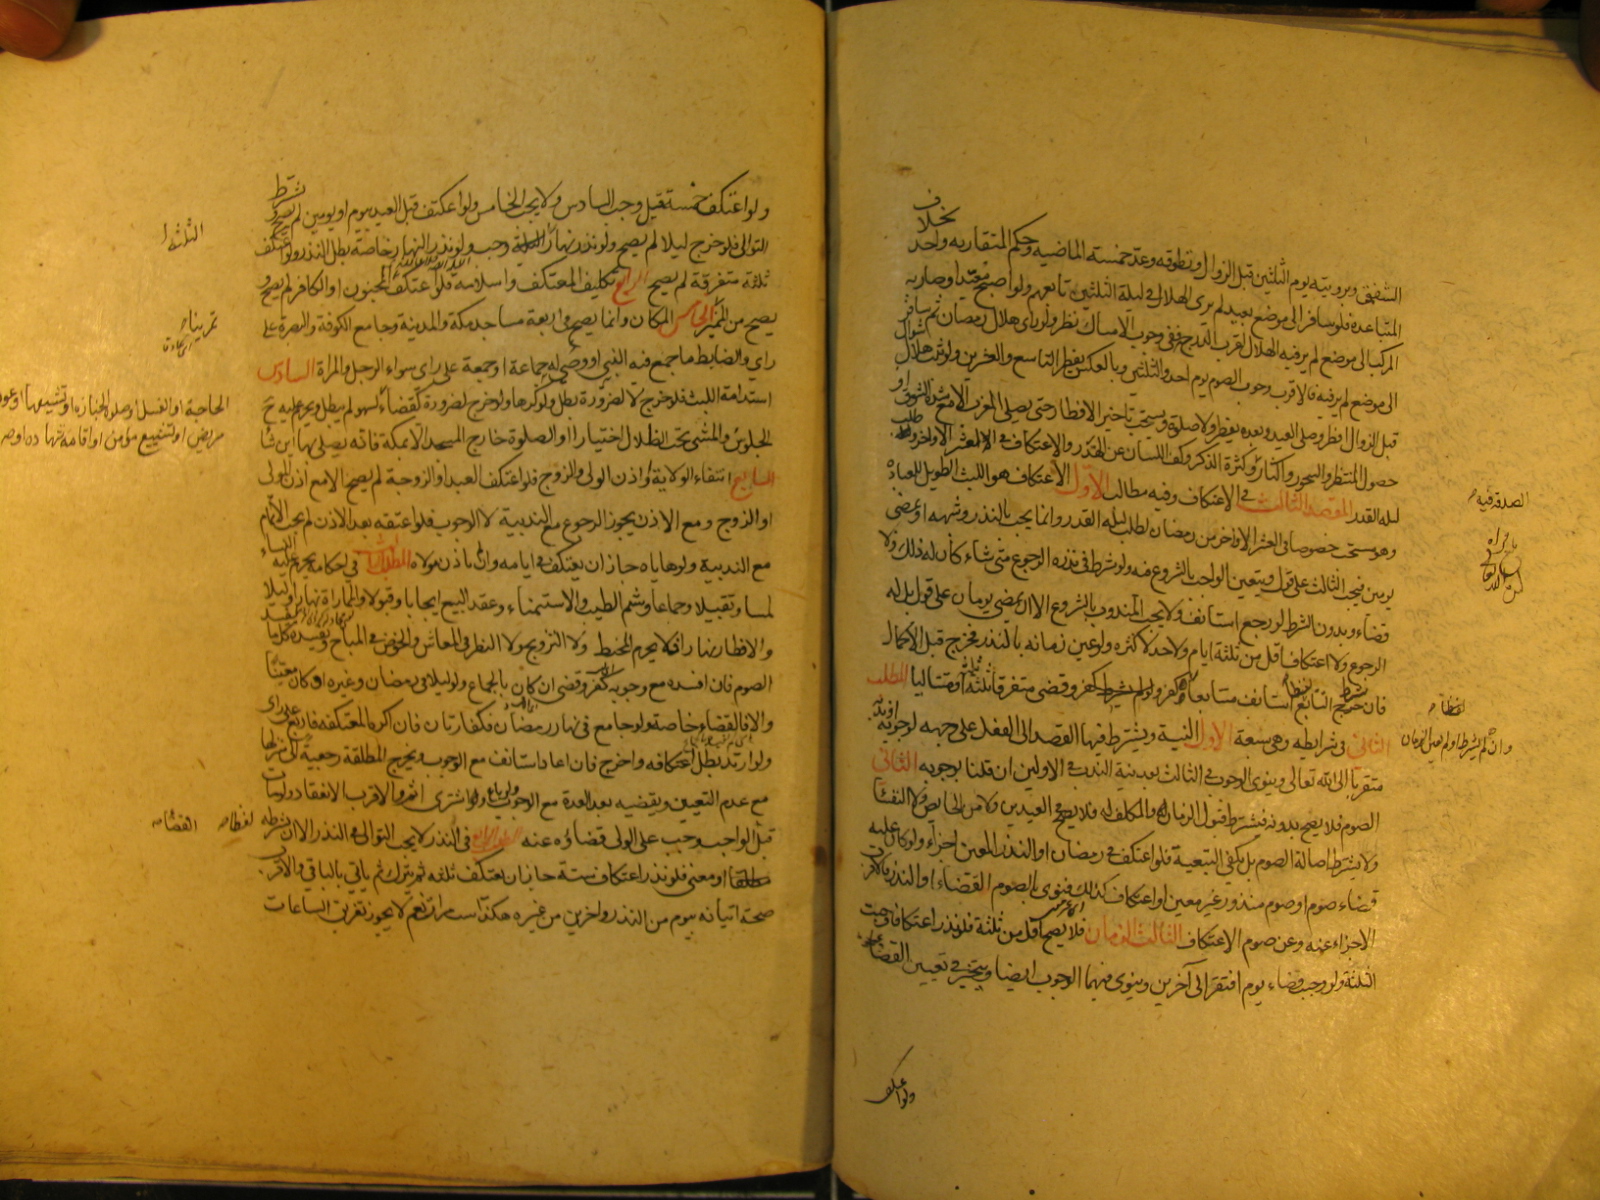 بخلاف
الشفق وبرويته يوم الثلثين قبل الزوال وتطوقه وعد خمسة الماضيه وحكم المتقاربه واحد
المتباعدة فلو سافر الى موضع بعيد لم يرى الهلال في ليلة الثلثين تابعهم ولو اصبح معيدا وصار به
المركب الى موضع لم ير فيه الهلال لقرب الدرج ففي وجوب الامساك نظر ولو راى هلال رمضان ثم سافر
الى موضع لم ير فيه فالاقرب وجوب الصوم يوم احد والثلثين وبالعكس يفطر التاسع والعشرين ولو ثبت هلال شوال
قبل الزوال افطر وصلى العيد وبعده يفطر ولا صلوة ويستحب تاخير الافطار حتى يصلى المغرب الا مع شدة الشوق او
حصول المنتظر والسحور واكثار وكثرة الذكر وكف اللسان عن الهذر والاعتكاف في العشر الاواخر وطلب
ليله القدر المقصد الثالث في الاعتكاف وفيه مطالب الاول الاعتكاف هو اللبث الطويل للعبادة
وهو مستحب خصوصا في العشر الاواخر من رمضان لطلب ليله القدر وانما يجب بالنذر وشبهه او بمضى
يومين فيجب الثالث على قول ويتعين الواجب بالشروع فيه ولو شرط في نذره الرجوع متى شاء كان له ذلك ولا
قضاء وبدون الشرط لو رجع استانف ولا يجب المندوب بالشروع الا ان يمضى يومان على قول بل له
الرجوع ولا اعتكاف اقل من ثلثة ايام ولا حد لاكثره ولو عين زمانه بالنذر فخرج قبل الاكمال
فان شرط التتابع استانف متتابعا وكفر ولو لم يشرط كفر وقضى متفرقا ثلثة او متتاليا المطلب
الثاني في شرايطه وهي سبعة الاول النية ويشترط فيها القصد الى الفعل على وجهه لوجوبه او ندبه
متقربا الى الله تعالى وينوى الوجوب في الثالث بعد نية الندب في الاولين ان قلنا بوجوبه الثاني
الصوم فلا يصح بدونه فيشترط قبول الزمان والمكلف له فلا يصح في العيدين ولا من الحايض ولا النفساء
ولا يشترط اصالة الصوم بل يكفى التبعية فلو اعتكف في رمضان او النذر المعين اجزاء ولو كان عليه
قضاء صوم او صوم منذور غير معين او اعتكاف كذلك فنوى بالصوم القضاء او النذر فالاقرب
الاجزاء عنه وعن صوم الاعتكاف الثالث الزمان فلا يصح اقل من ثلثة فلو نذر اعتكافا وجبت
الثلثة ولو وجب قضاء يوم افتقر الى آخرين وينوى فيهما الوجوب ايضا ويتخير في تعيين القضاء
ولو اعتكف
الصدقة فيه
لفظا
وان لم يشترط او لم يعين الزمان
ولو اعتكف خمسة قيل وجب السادس ولا يجب الخامس ولو اعتكف قبل العيد بيوم او يومين لم يصح وشرط
التوالى فلو خرج ليلا لم يصح ولو نذر نهار الثلثة وجب ولو نذر النهار خاصة بطل النذر ولو اعتكف
ثلثة متفرقة لم يصح الرابع تكليف المعتكف واسلامه فلو اعتكف المجنون او الكافر لم يصح و
يصح من المميز الخامس المكان وانما يصح في اربعة مساجد مكة والمدينة وجامع الكوفة والبصرة على
راى والضابط ما جمع فيه النبي او وصى له جماعة او جمعة على راى سواء الرجل والمراة السادس
استدامة اللبث فلو خرج لا لضرورة بطل ولو كرها ولو خرج لضرورة كقضاء او لسهو لم يبطل ويحرم عليه ح
الجلوس والمشى تحت الظلال اختيارا والصلوة خارج المسجد الا بمكة فانه يصلى بها اين شا
السابع انتفاء الولاية او اذن الولى والزوج فلو اعتكف العبد او الزوجة لم يصح الا مع اذن المولى
او الزوج ومع الاذن يجوز الرجوع مع الندبية لا الوجوب فلو اعتقه بعد الاذن لم يجب الاتمام
مع الندبية ولو هاياه جاز ان يعتكف في ايامه وان لم ياذن مولاه المطلب الثالث في احكامه يحرم عليه النساء
لمسا وتقبيلا وجماعا وشم الطيب والاستمناء وعقد البيع ايجابا وقبولا والمماراة نهارا وليلا
والافطار نهارا ولا يحرم المخيط ولا التزويج ولا النظر في المعاش والخوض في المباح ويفسده كلما يفسد
الصوم فان افسده مع وجوبه كفر وقضى ان كان بالجماع ولو ليلا في رمضان وغيره او كان معينا
والا فالقضاء خاصة ولو جامع في نهار رمضان فكفارتان فان اكره المعتكفة فاربع على راى
ولو ارتد بطل اعتكافه واخرج فان اعاد استانف مع الوجوب ويخرج المطلقة رجعية الى منزلها
مع عدم التعيين ويقضيه بعد العدة مع الوجوب ولو باع او اشترى اثم والاقرب الانعقاد ولو مات
قبل الواجب وجب على الولى قضاؤه عنه المطلب الرابع في النذر لا يجب التوالى في النذر الا ان يشرطه
مطلقا او معنى فلو نذر اعتكاف ستة جاز ان يعتكف ثلثه ثم يترك ثم ياتي بالباقي والاقرب
صحة اتيانه بيوم من النذر واخرين من غيره هكذا ست مرات نعم لا يجوز تفريق الساعات
الثلثة
تمرينا
الحاجة او الغسل او صلوة الجنازة او تشييعها او عود
مريض او تشييع مؤمن او اقامة شهادة
لفظا
القضاء